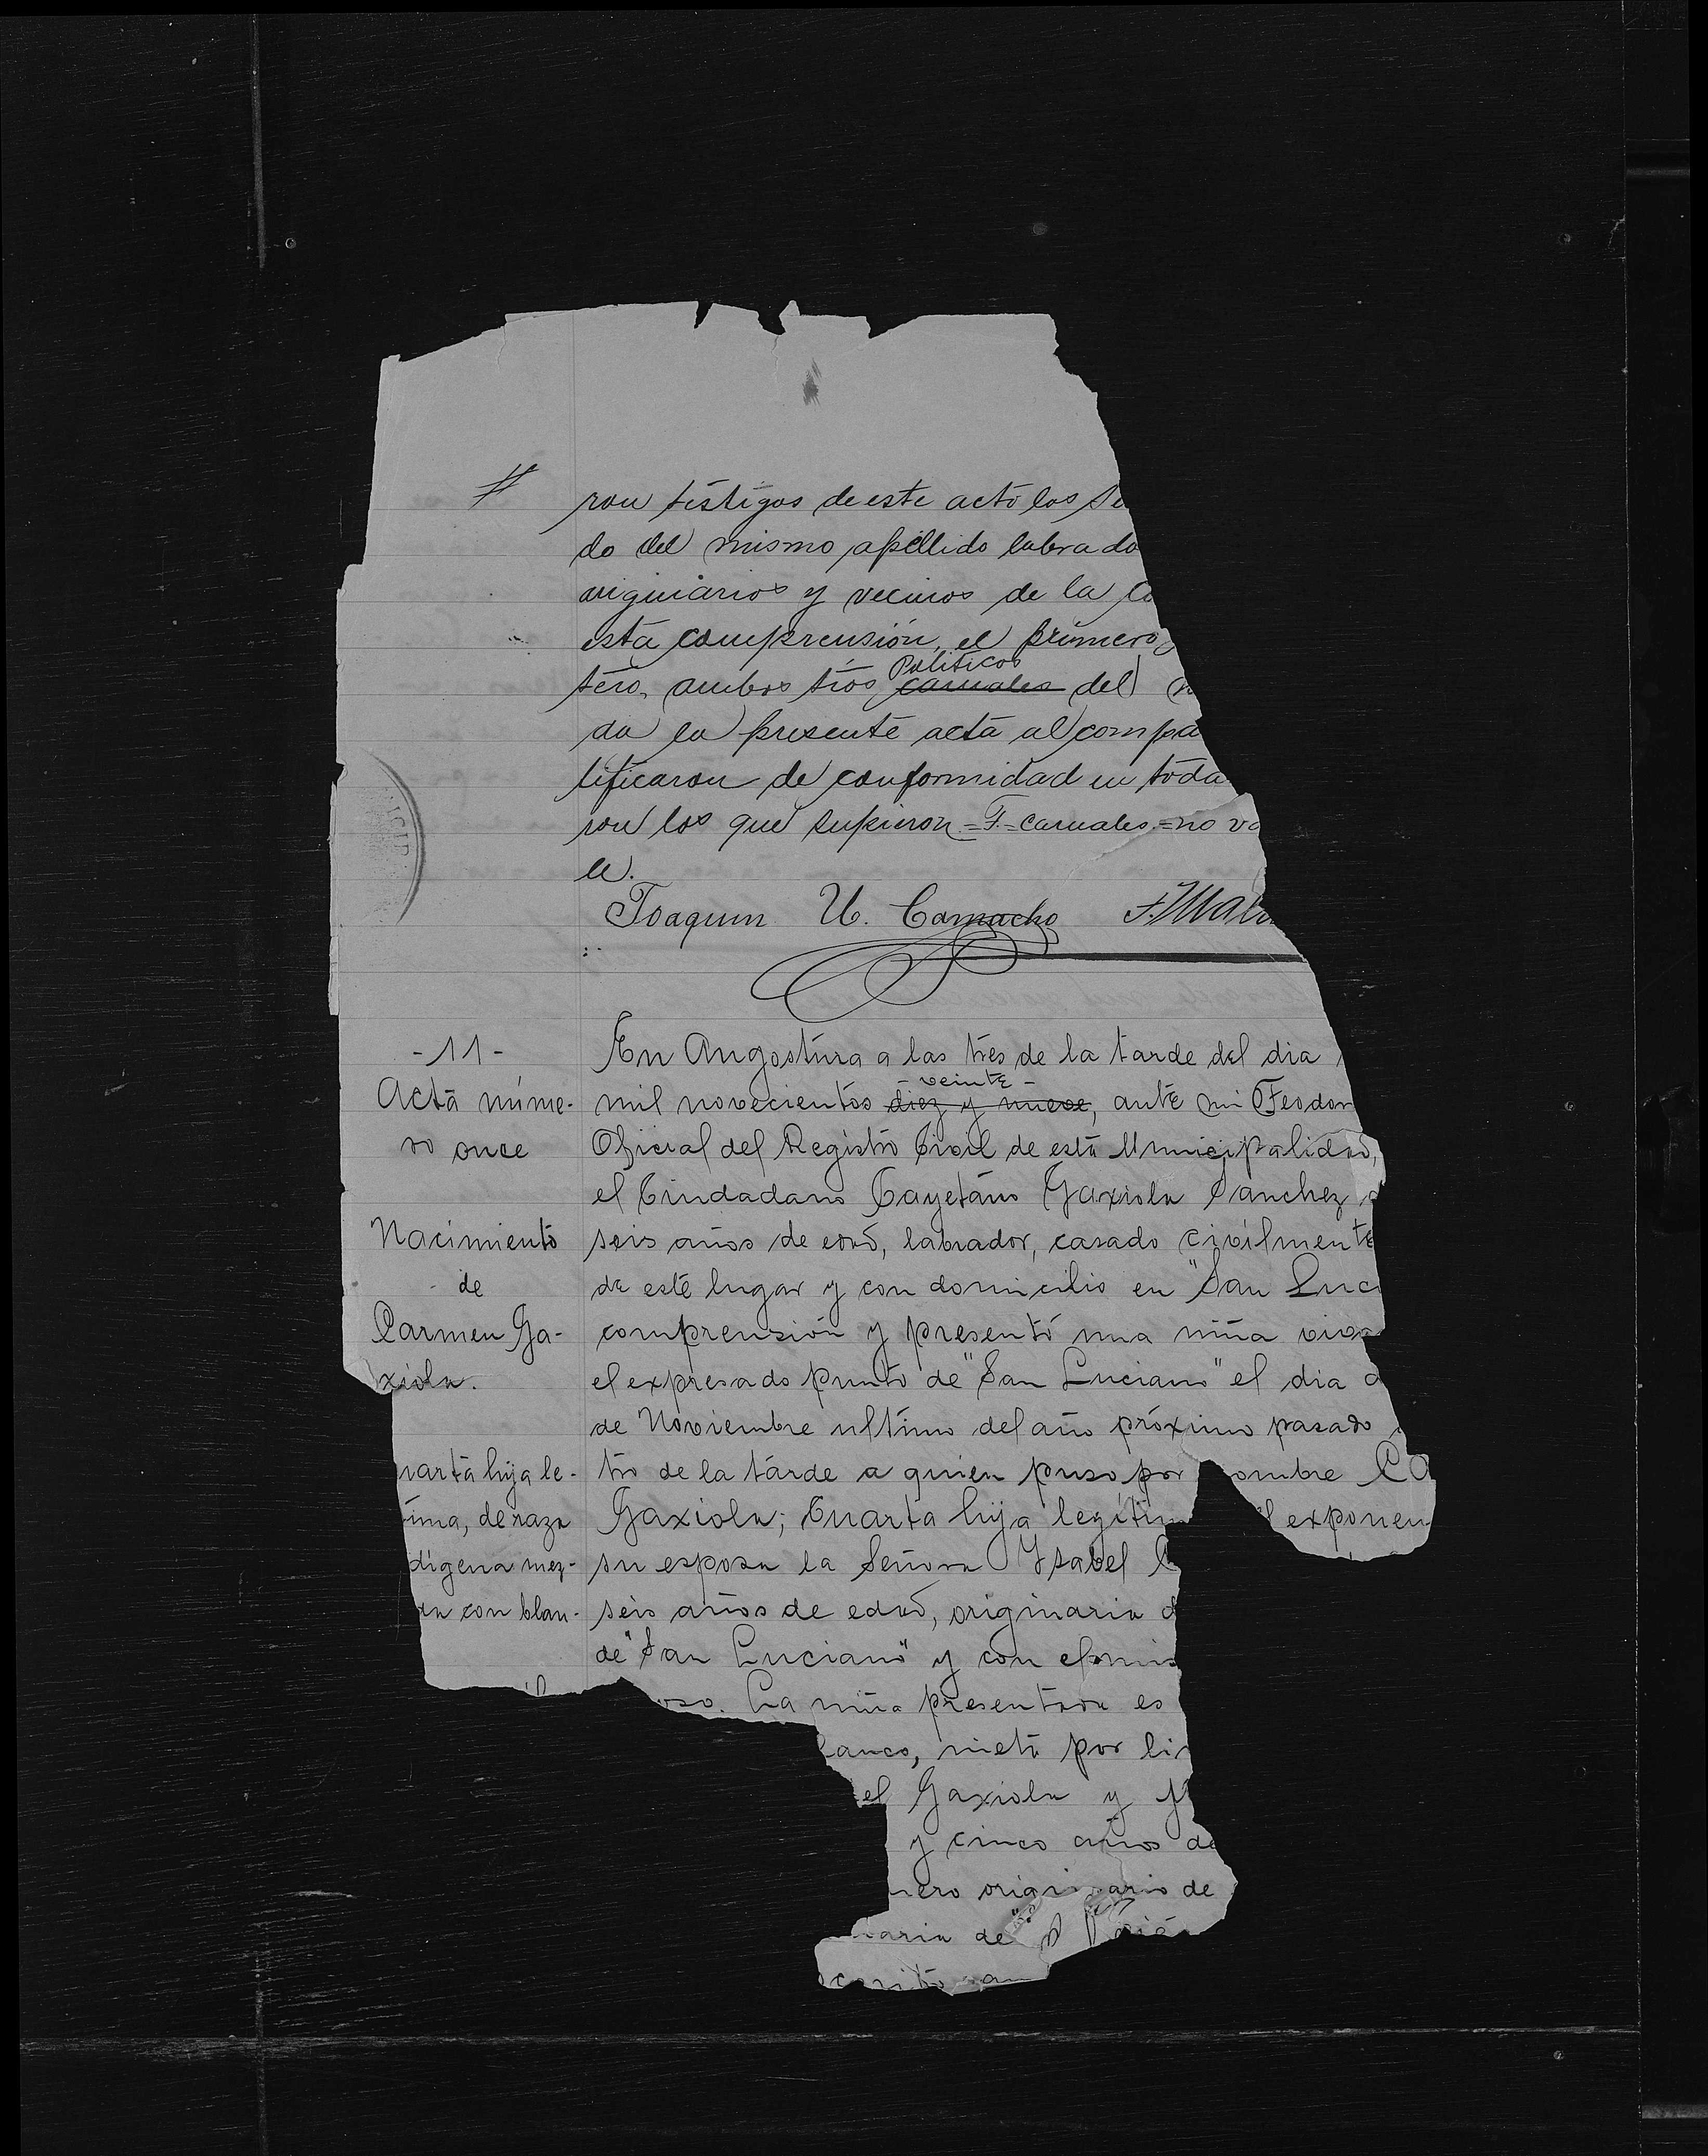 #
ron testigos de este acto los Se
do del mismo apellido labrado
originarios y vecinos de la Co
esta comprensión, el primero
tero, ambos tios carnales del
Politicos
da la presente acta al compa
tificaron de conformidad en toda
ron los que supieron = F = carnales. = no va
le.
Joaquin U. Camacho
- 11 -
Acta núme-
ro once
Nacimiento
de
Carmen Ga-
xiola.
uarta hija le-
tima, de raza
dígena mez-
da con blan-
En Angostura a las tres de la tarde del dia
- veinte -
mil novecientos diez y nueve, ante mi Teodor
Oficial del Registro Civil de esta Municipalidad,
el Ciudadano Cayetano Gaxiola Sanchez
seis años de edad, labrador, casado civilmente
de este lugar y con domicilio en "San Luci
comprensión y presentó una niña viva
el expresado punto de "San Luciano" el dia d
de Noviembre ultimo del año próximo pasado
tro de la tarde a quien puso por ombre Ca
Gaxiola; Cuarta hija legitim el exponen
su esposa la Señora Ysabel C
seis años de edad, originaria d
de "San Luciano" y con el
oso. La niña presentada es
lanco, nieta por lin
el Gaxiola y
y cinco años de
mero originario de
naria de